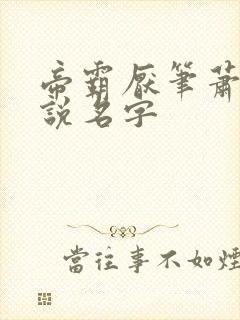 帝霸厭筆蕭
說名字
當往事不如煙